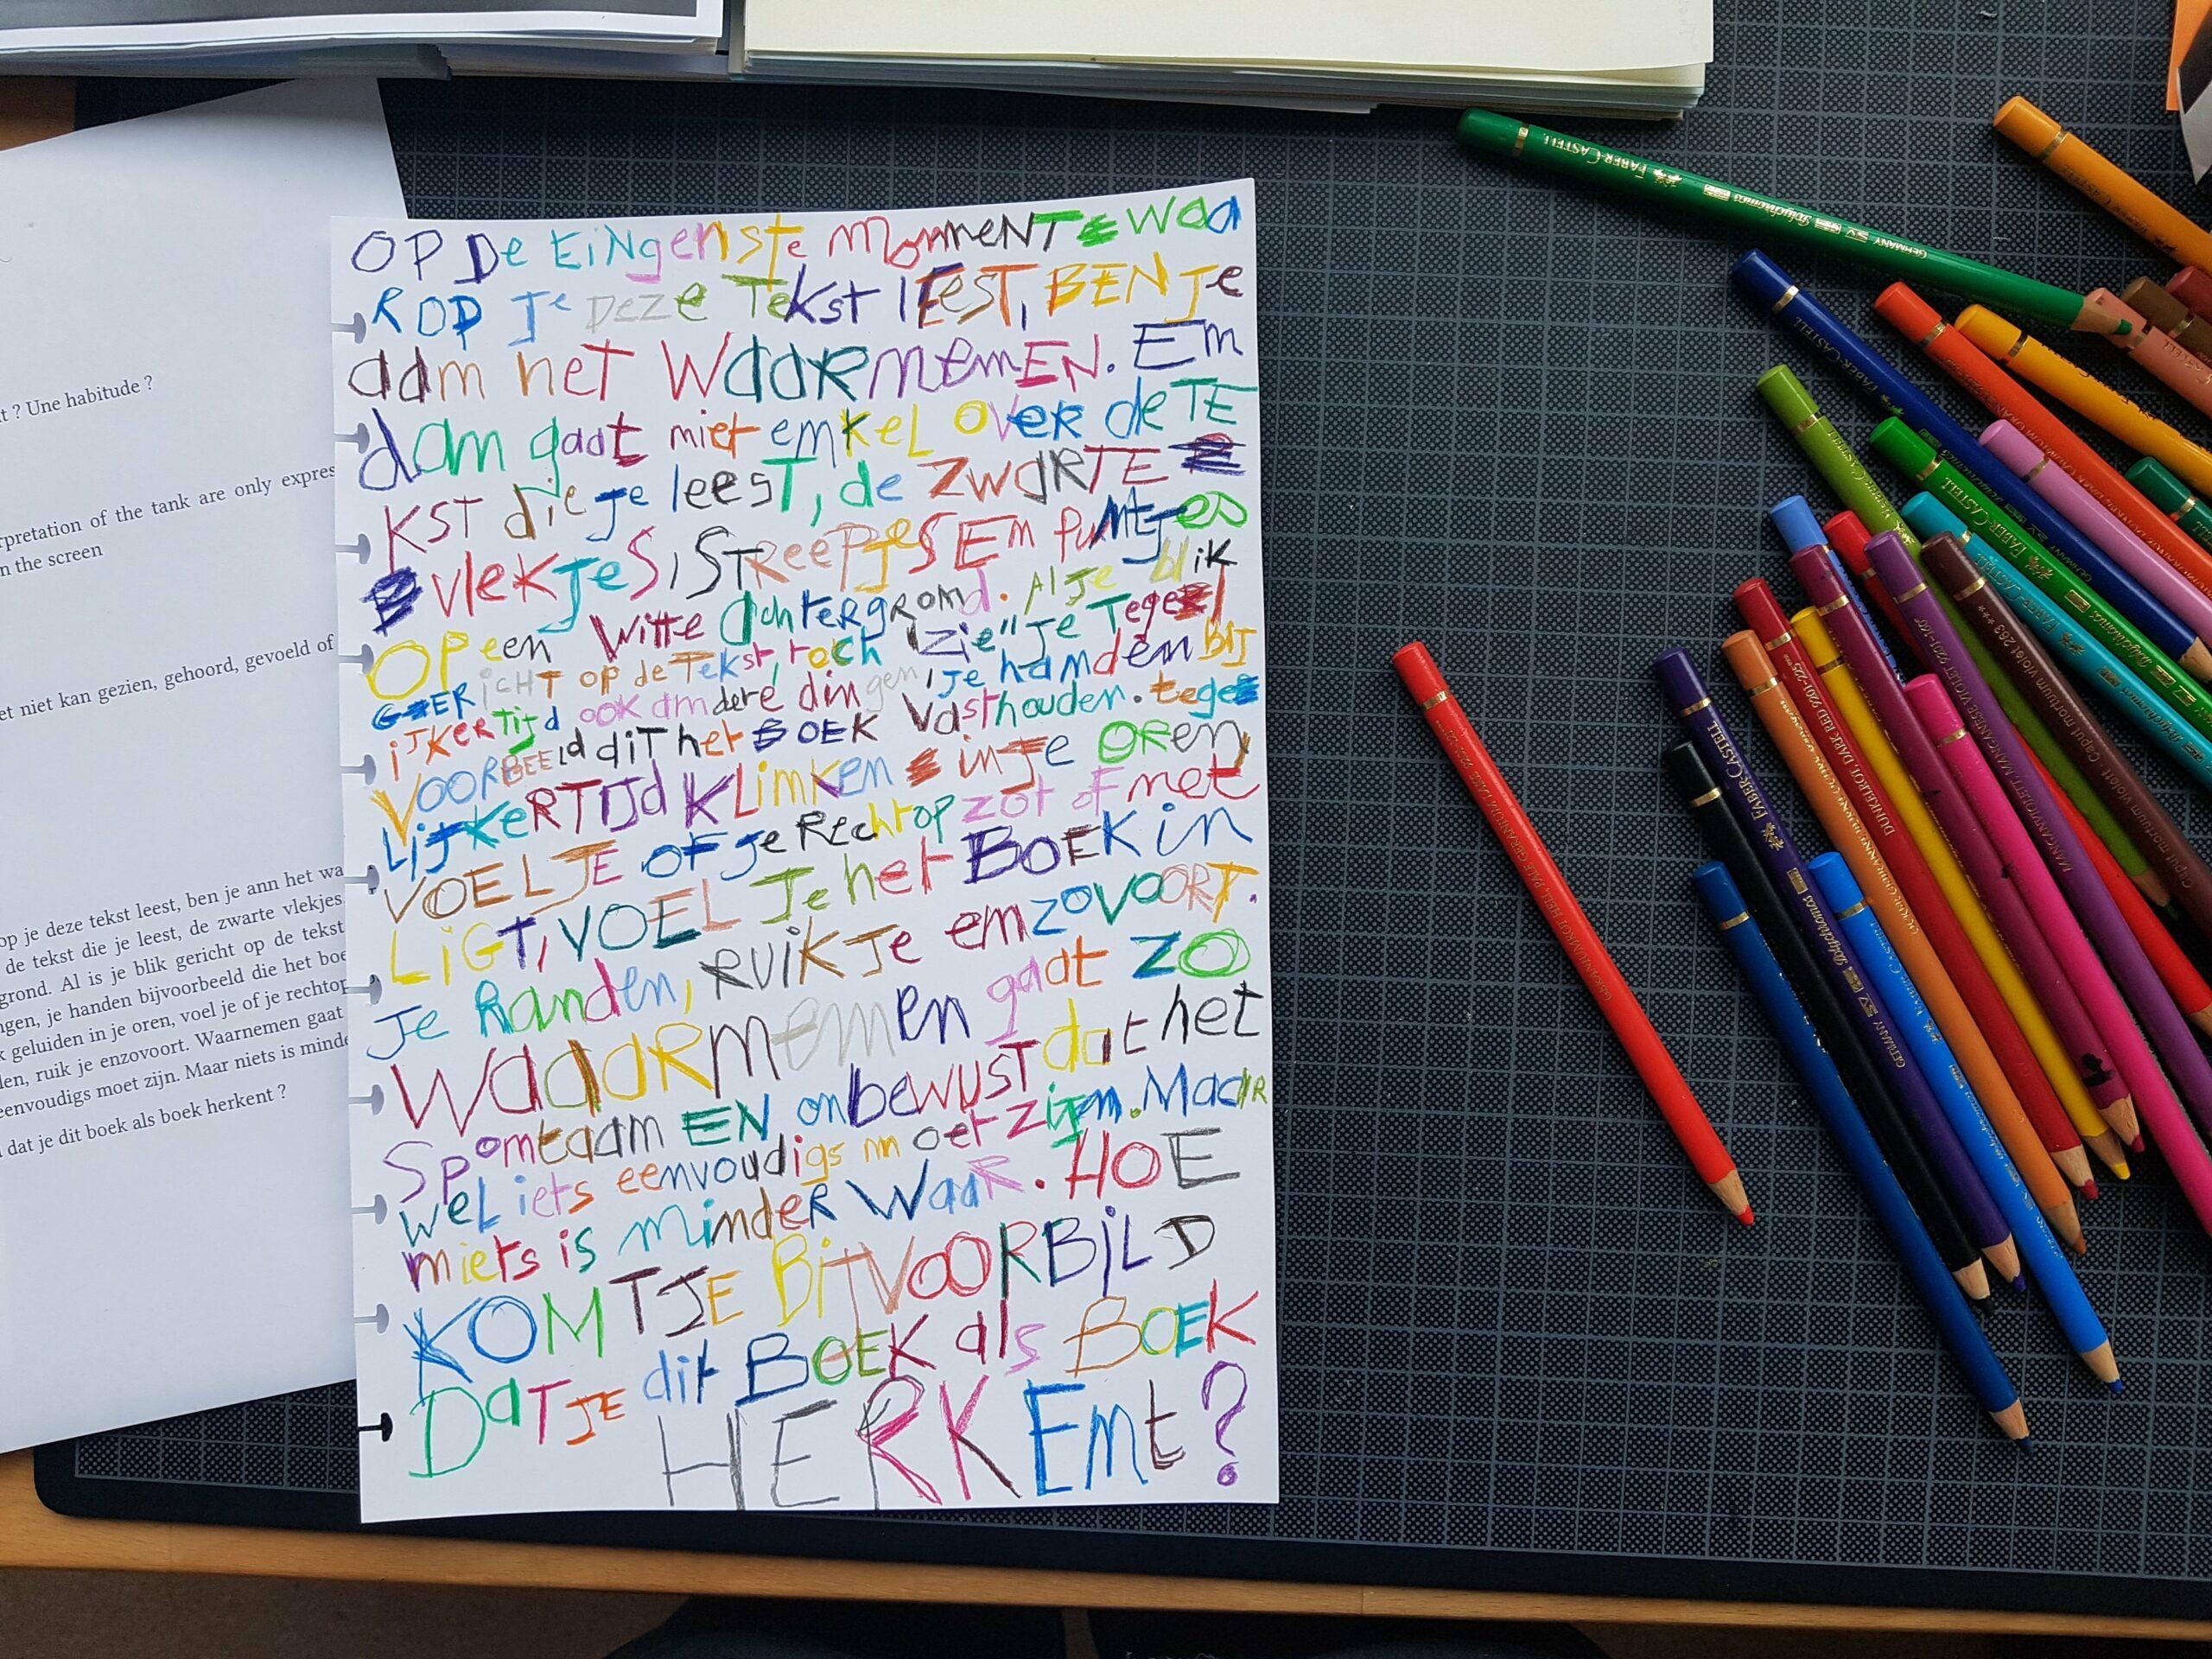 t ? Une habitude ?
rpretation of the tank are only expres
n the screen
et niet kan gezien, gehoord, gevoeld of
op je deze tekst leest, ben je ann het wa
de tekst die je leest, de zwarte vlekjes,
grond. Al is je blik gericht op de tekst
ngen, je handen bijvoorbeeld die het boe
k geluiden in je oren, voel je of je rechtop
len, ruik je enzovoort. Waarnemen gaat
eenvoudigs moet zijn. Maar niets is minde
dat je dit boek als boek herkent ?
OP De EiNgenste momeNT waa
ROP Je Deze Tekst lEEST, BEN Je
aam het WaaRmemEN. Em
dam gaat miet emkel OVER de TE
KST die je leesT, de ZwaRTE
vlekjes, STReepjes Em pumtjes
OP een Witte achtergromd. Al je blik
GERicHT op de Tekst, toch "Zie" je Tegel
ijkerTijd ook amdere dingen, je hamdem BIJ
VOORBEEld diT het BOEK Vasthouden. tege
LijkeRTIJd KLimken in je OReN
VOEL JE OF je Rechtop zot of met
LiGT, VOEL Je het BOEK in
Je Randen, RUik Je emzoVOORT.
WaaRmemen gaat ZO
Spomtaam EN onbewusT dat het
weL iets eenvoudigs moet zijm. MaaR
miets is mimdeR WaaR. HOE
KOMT JE BIJVOORBiLD
DaT JE dit BOEK als BOEK
HERKEmt?
FABER-CASTELL
Polychromos
GERMANY
FABER-CASTELL